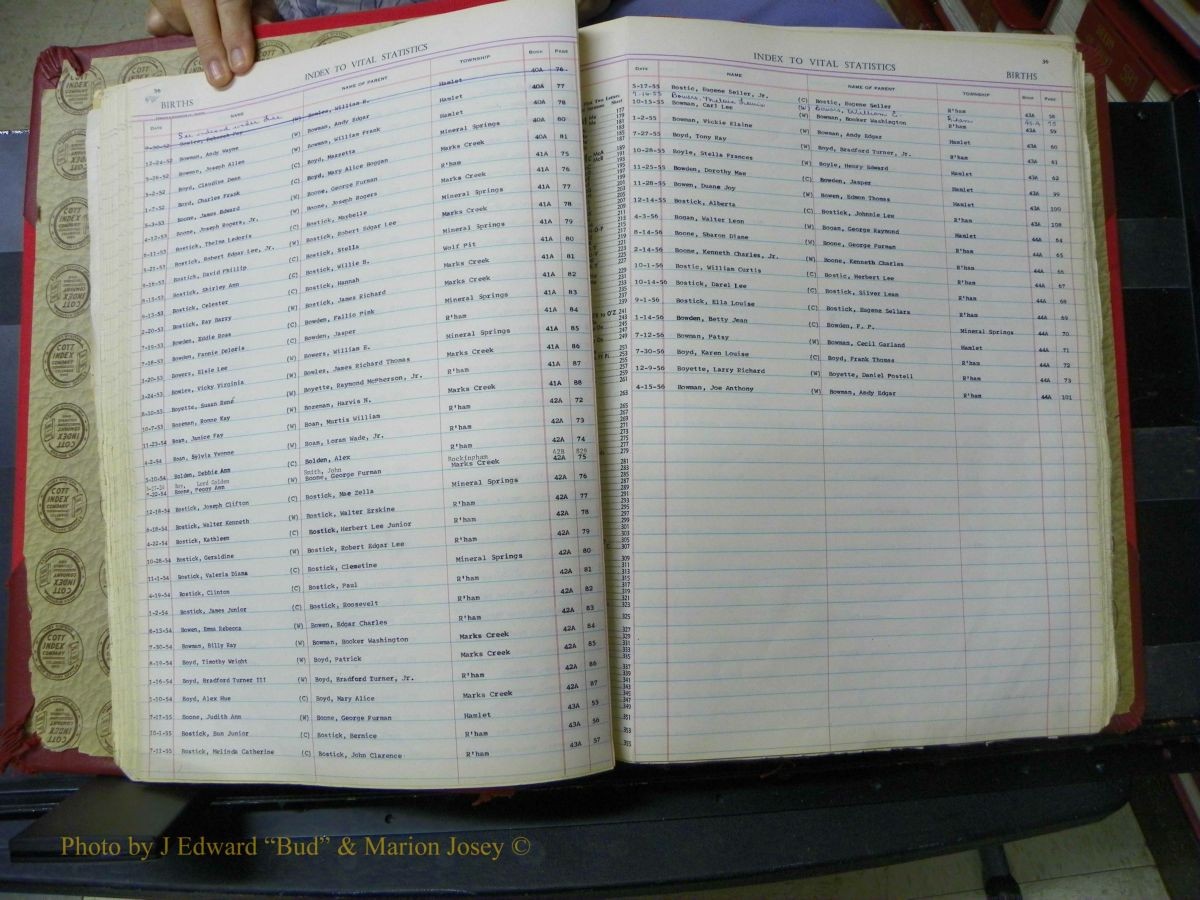 36
INDEX TO VITAL STATISTICS
BIRTHS
DATE NAME NAME OF PARENT TOWNSHIP BOOK PAGE
See and under Bowles, William R. Hamlet 40A 76
Bowman, Andy Wayne (W) Bowman, Andy Edgar Hamlet 40A 77
Bowman, Joseph Allen (W) Bowman, William Frank Hamlet 40A 78
Boyd, Claudius Dean (C) Boyd, Marzetta Mineral Springs 40A 80
Boyd, Charles Frank (C) Boyd, Mary Alice Boggan Marks Creek 40A 81
Boone, James Edward (W) Boone, George Furman R'ham 41A 75
Boone, Joseph Rogers, Jr. (W) Boone, Joseph Rogers Marks Creek 41A 76
Bostick, Thelma Ledoris (C) Bostick, Maybelle Mineral Springs 41A 77
Bostick, Robert Edgar Lee, Jr. (W) Bostick, Robert Edgar Lee Marks Creek 41A 78
Bostick, David Phillip (C) Bostick, Stella Mineral Springs 41A 79
Bostick, Shirley Ann (C) Bostick, Willie B. Wolf Pit 41A 80
Bostick, Celester (C) Bostick, Hannah Marks Creek 41A 81
Bostick, Ray Barry (W) Bostick, James Richard Marks Creek 41A 82
Bowden, Eddie Ross (C) Bowden, Fallio Pink Mineral Springs 41A 83
Bowden, Fannie Deloris (C) Bowden, Jasper R'ham 41A 84
Bowers, Elsie Lee (W) Bowers, William E. Mineral Springs 41A 85
Bowles, Vicky Virginia (W) Bowles, James Richard Thomas Marks Creek 41A 86
Boyette, Susan René (W) Boyette, Raymond McPherson, Jr. R'ham 41A 87
10-7-53 Bozeman, Ronne Kay (W) Bozeman, Harvis N. Marks Creek 41A 88
11-23-54 Boan, Janice Fay (W) Boan, Murtis William R'ham 42A 72
4-2-54 Boan, Sylvia Yvonne (W) Boan, Loran Wade, Jr. R'ham 42A 73
5-10-54 Bolden, Debbie Ann (C) Bolden, Alex R'ham 42A 74
Lord Golden Smith, John Rockingham 42B 829
7-22-54 Boone, Peggy Ann (W) Boone, George Furman Marks Creek 42A 75
12-18-54 Bostick, Joseph Clifton (C) Bostick, Mae Zella Mineral Springs 42A 76
8-18-54 Bostick, Walter Kenneth (W) Bostick, Walter Erskine R'ham 42A 77
4-22-54 Bostick, Kathleen (C) Bostick, Herbert Lee Junior R'ham 42A 78
10-28-54 Bostick, Geraldine (W) Bostick, Robert Edgar Lee R'ham 42A 79
11-1-54 Bostick, Valeria Diana (C) Bostick, Clemetine Mineral Springs 42A 80
4-19-54 Bostick, Clinton (C) Bostick, Paul R'ham 42A 81
1-2-54 Bostick, James Junior (C) Bostick, Roosevelt R'ham 42A 82
8-13-54 Bowen, Emma Rebecca (W) Bowen, Edgar Charles R'ham 42A 83
7-30-54 Bowman, Billy Ray (W) Bowman, Booker Washington Marks Creek 42A 84
8-19-54 Boyd, Timothy Wright (W) Boyd, Patrick Marks Creek 42A 85
1-16-54 Boyd, Bradford Turner III (W) Boyd, Bradford Turner, Jr. R'ham 42A 86
Boyd, Alex Hue (C) Boyd, Mary Alice Marks Creek 42A 87
7-17-55 Boone, Judith Ann (W) Boone, George Furman Hamlet 43A 55
Bostick, Bun Junior (C) Bostick, Bernice R'ham 43A 56
7-11-55 Bostick, Melinda Catherine (C) Bostick, John Clarence R'ham 43A 57
INDEX TO VITAL STATISTICS
36
BIRTHS
DATE NAME NAME OF PARENT TOWNSHIP BOOK PAGE
5-17-55 Bostic, Eugene Seller, Jr. (C) Bostic, Eugene Seller R'ham 43A 58
Bowers, William E.
10-15-55 Bowman, Carl Lee (W) Bowman, Booker Washington R'ham 43A 59
1-2-55 Bowman, Vickie Elaine (W) Bowman, Andy Edgar Hamlet 43A 60
7-27-55 Boyd, Tony Ray (W) Boyd, Bradford Turner, Jr. R'ham 43A 61
10-28-55 Boyle, Stella Frances (W) Boyle, Henry Edward Hamlet 43A 62
11-25-55 Bowden, Dorothy Mae (C) Bowden, Jasper Hamlet 43A 99
11-28-55 Bowen, Duane Joy (W) Bowen, Edmon Thomas Hamlet 43A 100
12-14-55 Bostick, Alberta (C) Bostick, Johnnie Lee R'ham 43A 108
4-3-56 Bogan, Walter Leon (C) Bogan, George Raymond Hamlet 44A 64
8-14-56 Boone, Sharon Diane (W) Boone, George Furman R'ham 44A 65
2-14-56 Boone, Kenneth Charles, Jr. (W) Boone, Kenneth Charles R'ham 44A 66
10-1-56 Bostic, William Curtis (C) Bostic, Herbert Lee R'ham 44A 67
10-14-56 Bostick, Darel Lee (C) Bostick, Silver Leam R'ham 44A 68
9-1-56 Bostick, Ella Louise (C) Bostick, Eugene Sellars R'ham 44A 69
1-14-56 Bowden, Betty Jean (C) Bowden, F. P. Mineral Springs 44A 70
7-12-56 Bowman, Patsy (W) Bowman, Cecil Garland Hamlet 44A 71
7-30-56 Boyd, Karen Louise (C) Boyd, Frank Thomas R'ham 44A 72
12-9-56 Boyette, Larry Richard (W) Boyette, Daniel Postell R'ham 44A 73
4-15-56 Bowman, Joe Anthony (W) Bowman, Andy Edgar R'ham 44A 101
COTT INDEX COMPANY
Photo by J Edward “Bud” & Marion Josey ©